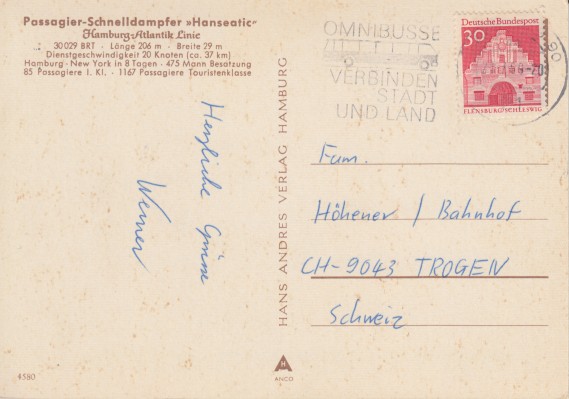 Passagier-Schnelldampfer »Hanseatic«
Hamburg-Atlantik Linie
30 029 BRT · Länge 206 m · Breite 29 m
Dienstgeschwindigkeit 20 Knoten (ca. 37 km)
Hamburg - New York in 8 Tagen · 475 Mann Besatzung
85 Passagiere I. Kl. · 1167 Passagiere Touristenklasse
OMNIBUSSE
VERBINDEN
STADT
UND LAND
Deutsche Bundespost
30
FLENSBURG/SCHLESWIG
Herzliche Grüsse
Werner
HANS ANDRES VERLAG HAMBURG
Fam.
Höhener / Bahnhof
CH-9043 TROGEN
Schweiz
4580
H
ANCO